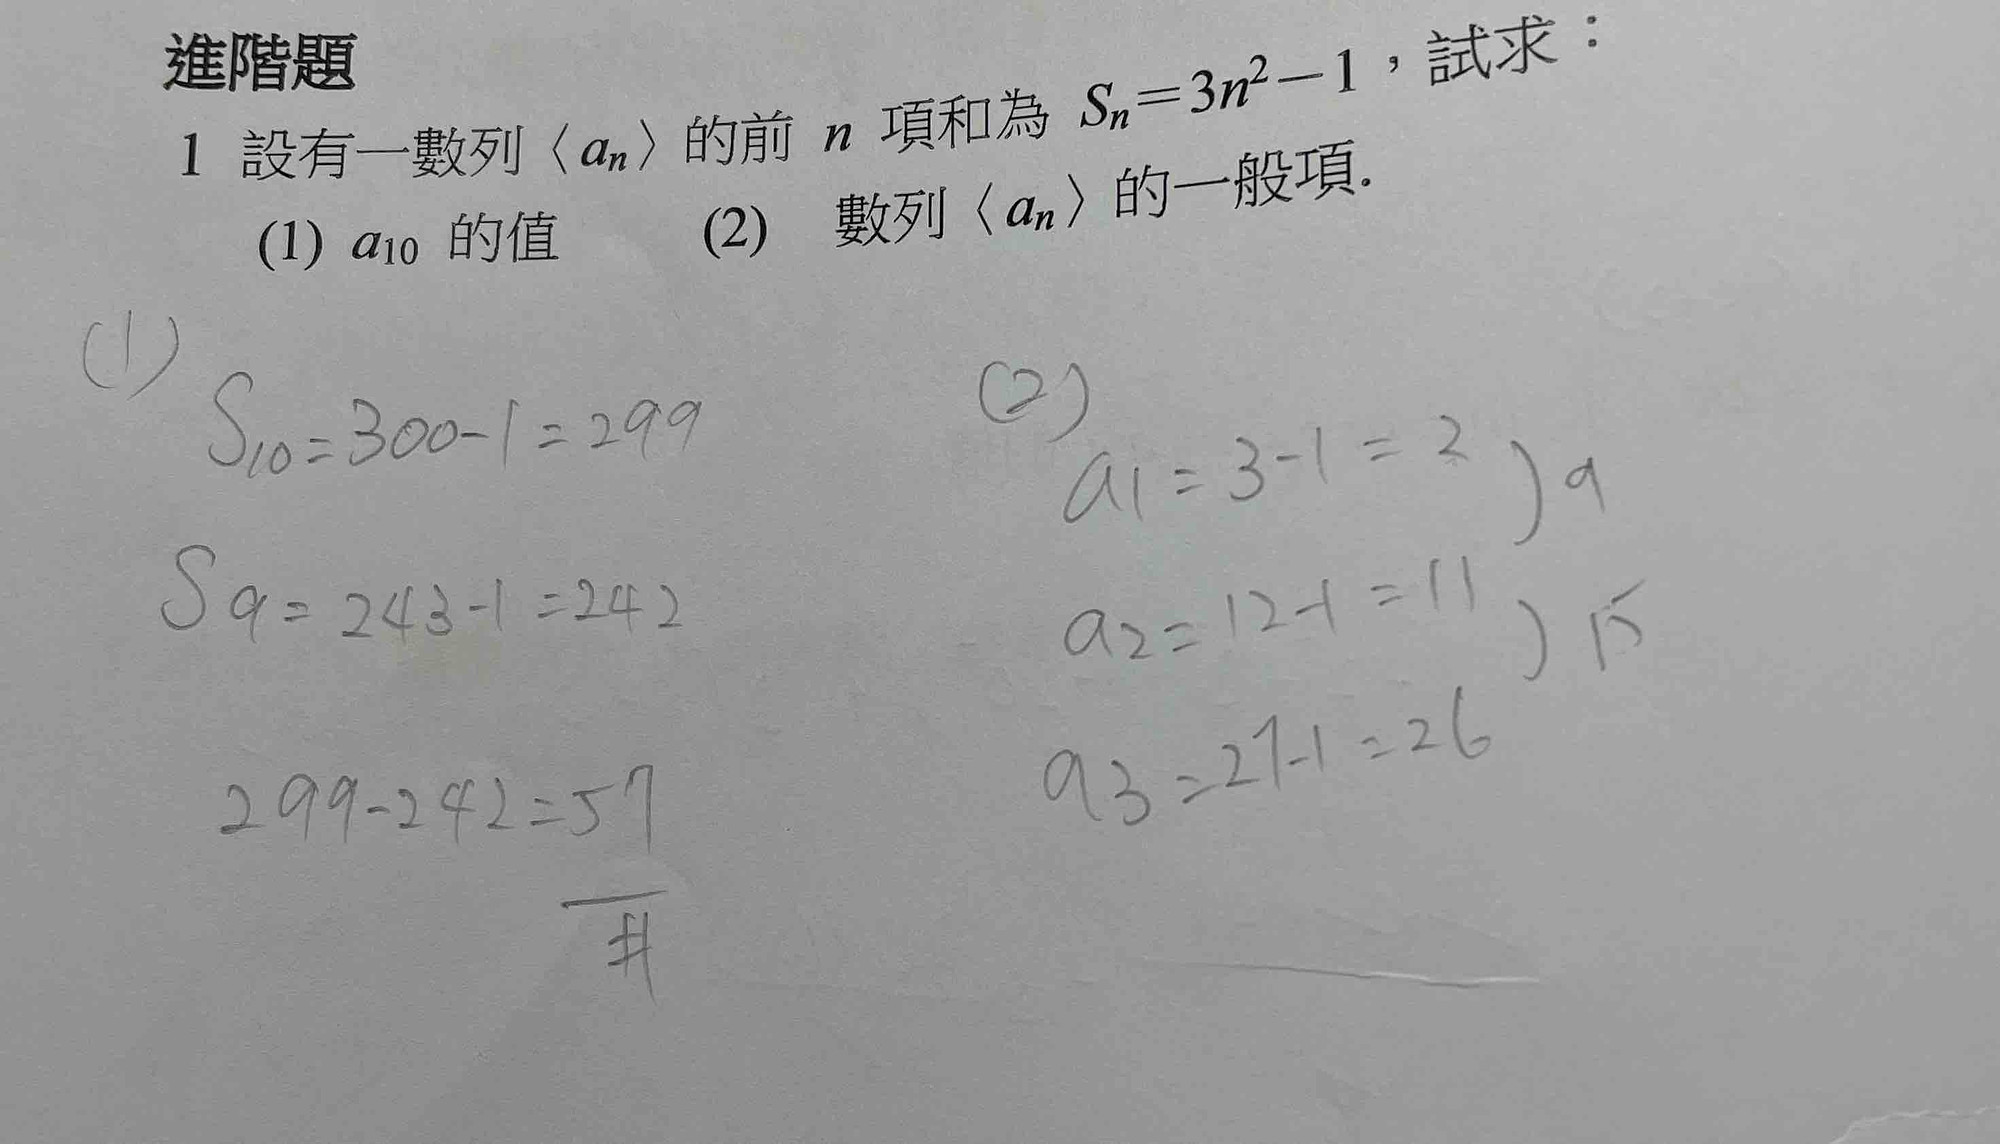 進階題
1 設有一數列〈aₙ〉的前 n 項和為 Sₙ=3n²−1，試求：
(1) a₁₀ 的值 (2) 數列〈aₙ〉的一般項.
(1)
S₁₀=300-1=299
S₉=243-1=242
299-242=57
#
(2)
a₁=3-1=2 ) 9
a₂=12-1=11 ) 15
a₃=27-1=26